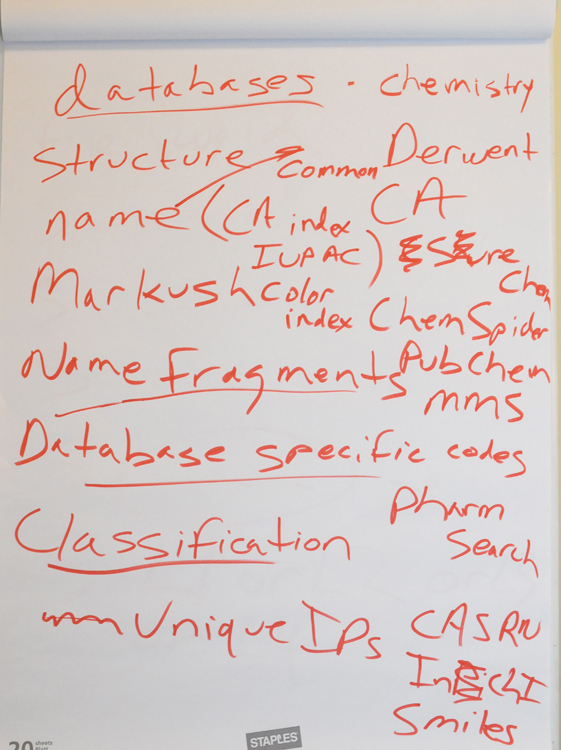 databases - chemistry
structure common Derwent
name (CA index CA
IUPAC) Sure
Markush color Chem
index ChemSpider
Name fragments PubChem
mms
Database specific codes
Pharm
Classification Search
Unique IPs CASRN
InChI
Smiles
20 sheets
STAPLES